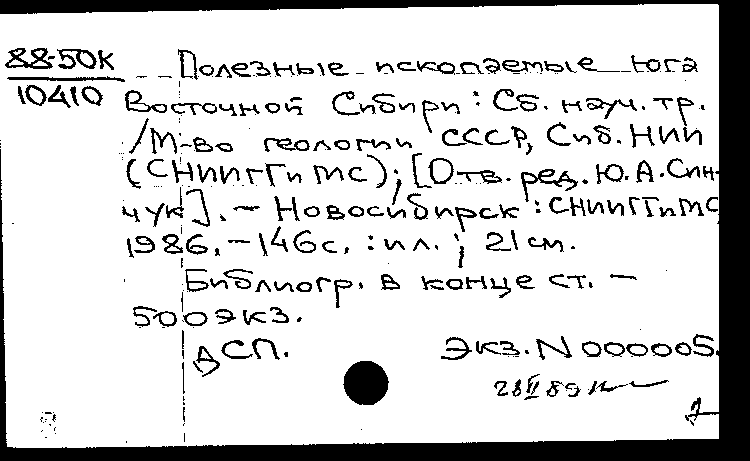 88-50К
10410
Полезные ископаемые юга
Восточной Сибири: Сб. науч. тр.
/М-во геологии СССР, Сиб. НИИ
(СНИИГГиМС); [Отв. ред. Ю.А. Син-
чук]. - Новосибирск: СНИИГГиМС,
1986. - 146с. : ил. ; 21 см.
Библиогр. в конце ст. -
500 экз.
ДСП. Экз. N 000005.
28 II 89